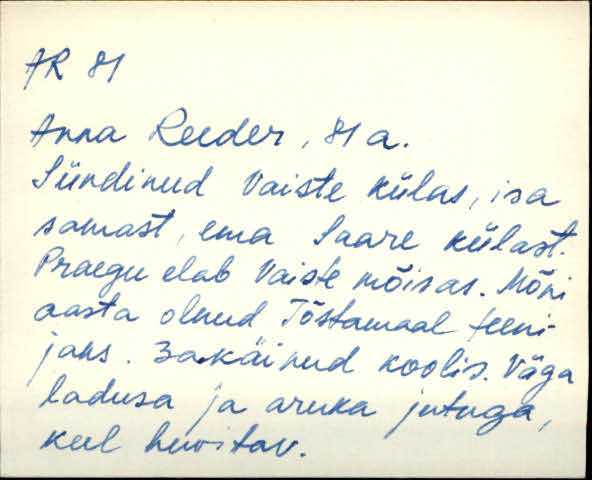 AR 81
Anna Reeder, 81 a.
Sündinud Vaiste külas, isa
samast, ema Saare külast.
Praegu elab Vaiste mõisas. Mõni
aasta olnud Tõstamaal teeni-
jaks. 3 a. käinud koolis. Väga
ladusa ja aruka jutuga,
keel huvitav.